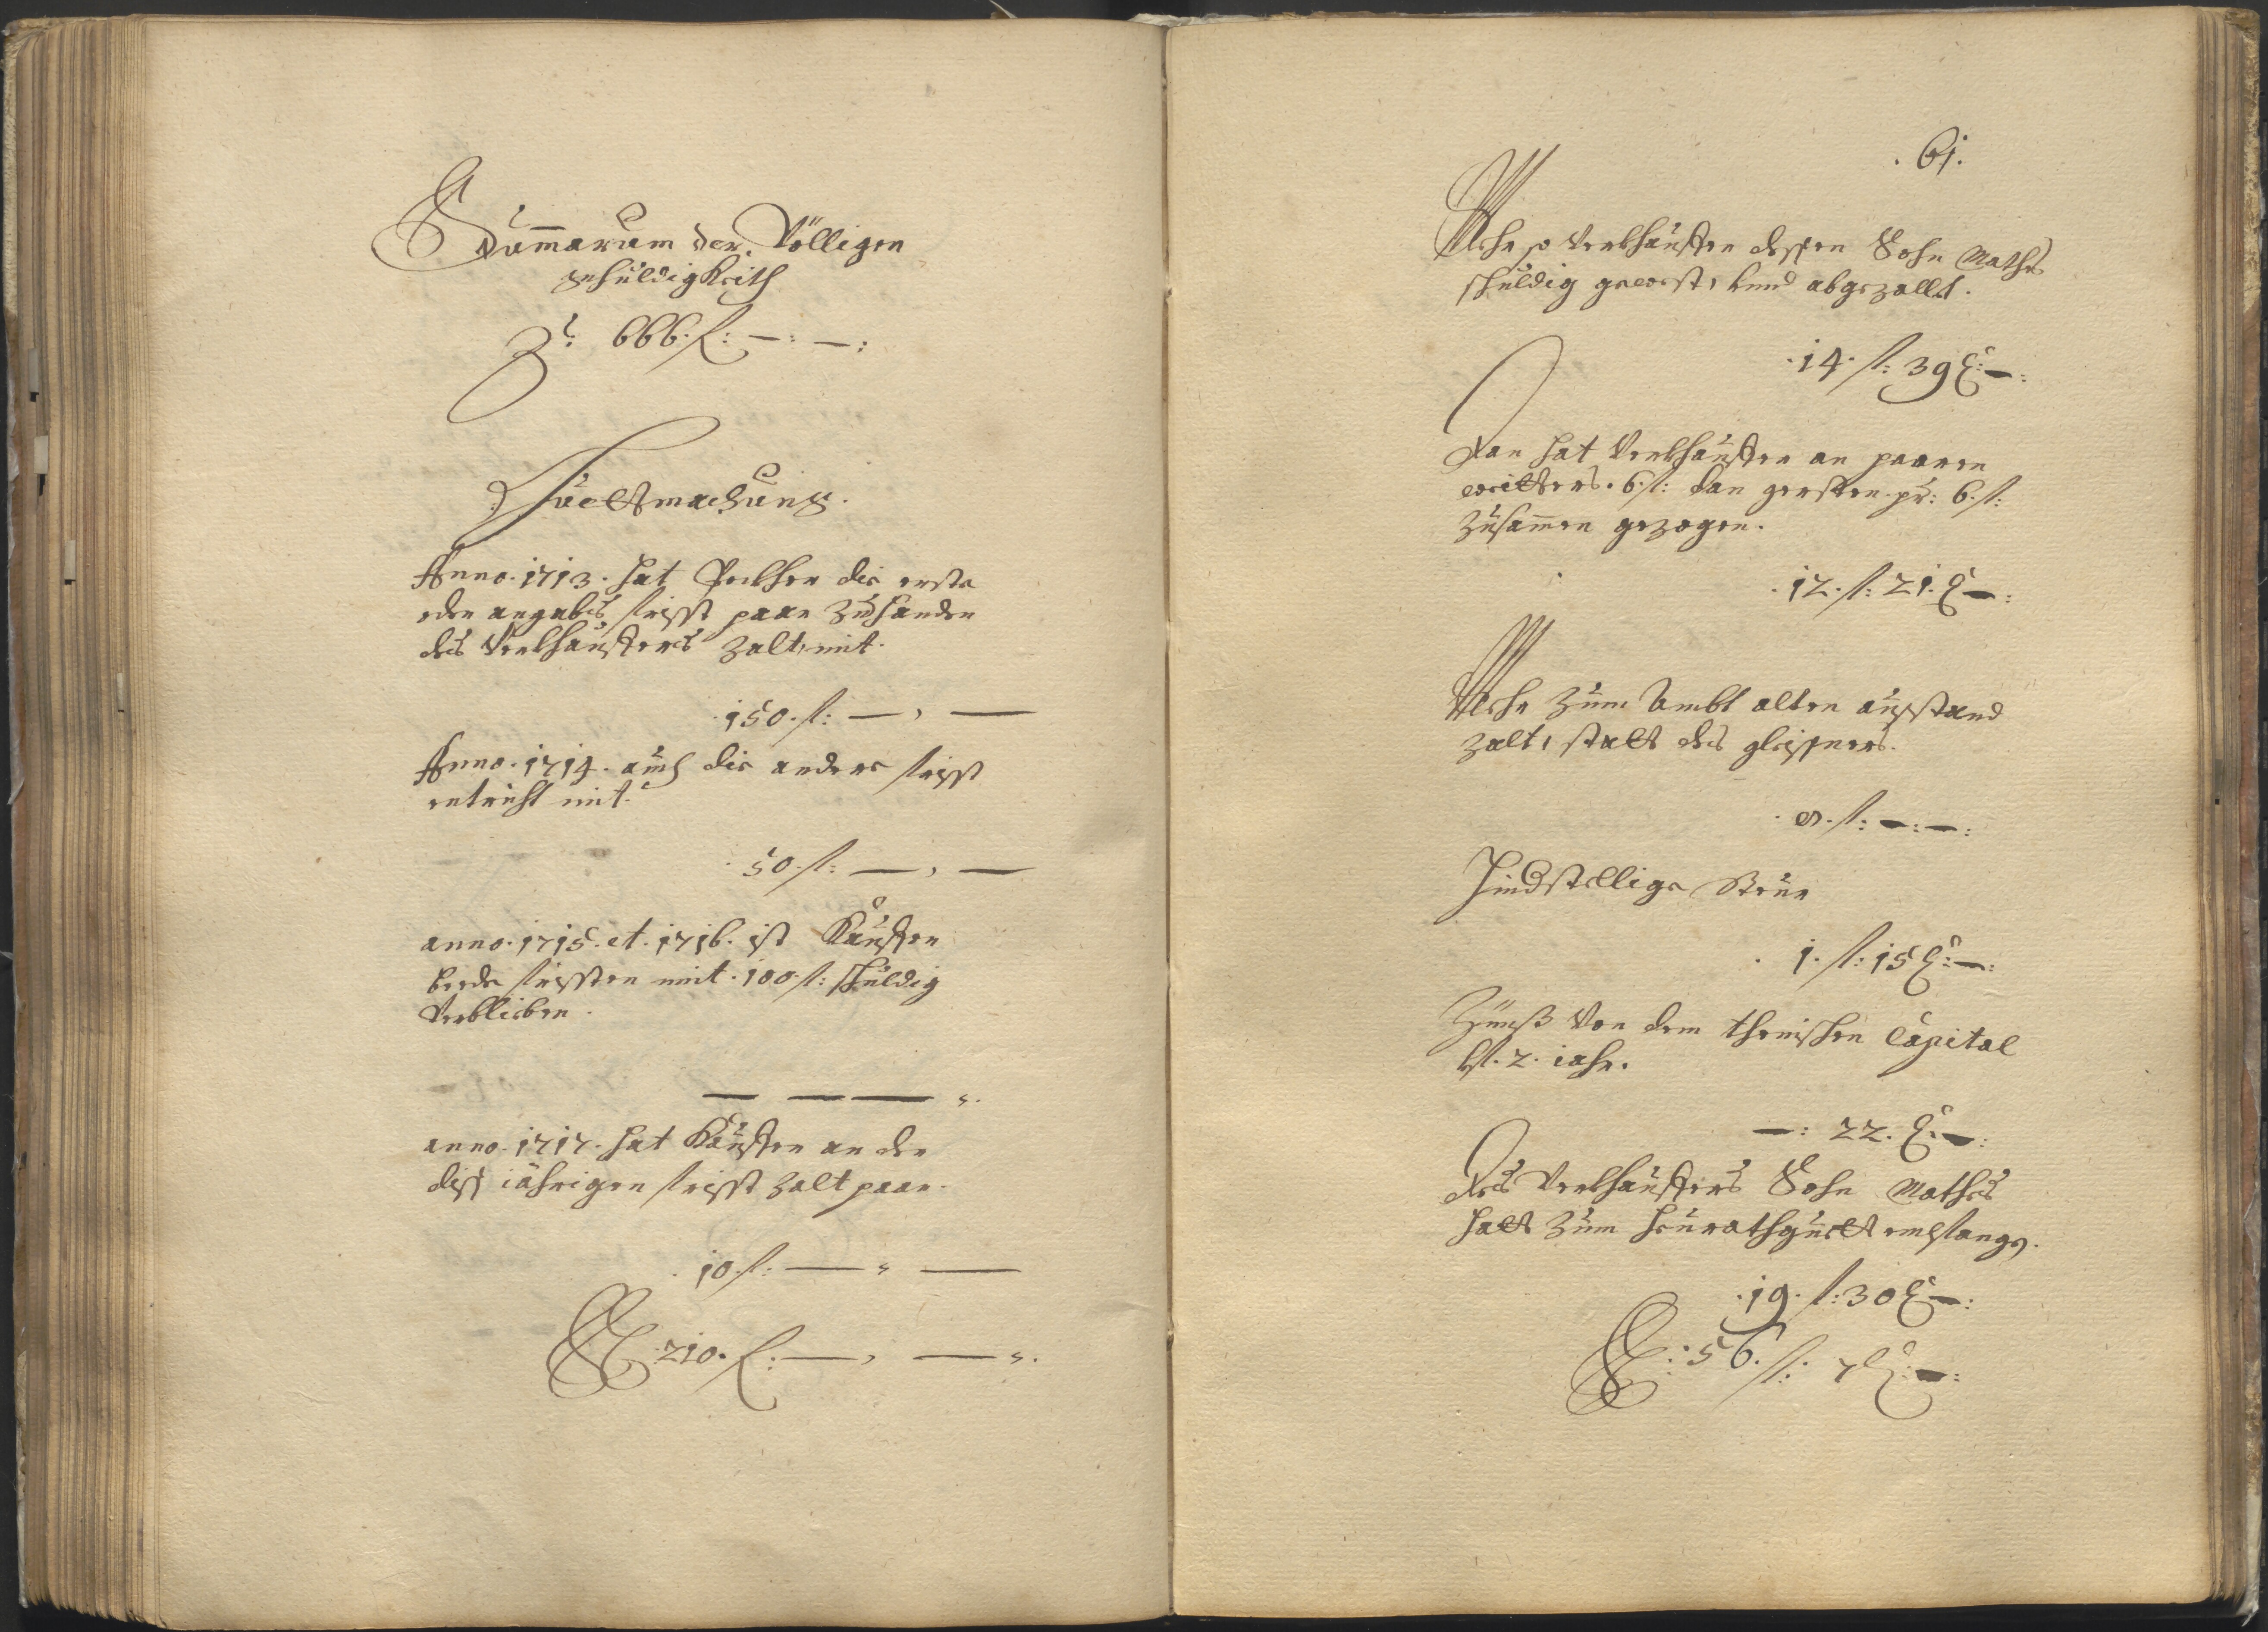 Summarum der Völligen
schuldigkeith
666. f: —: —:
Guettmachung.
Anno. 1713. hat die erste
oder angabs frisst paar zuhanden
des Verkhauffers zalt, mit.
150. f: — , —
Anno. 1714. auch die andere frisst
entricht mit.
50. f: — , —
anno. 1715. et. 1716. ist Kauffer
beede fristen mit. 100. f: schuldig
Verbliben.
— — —
anno. 1717. hat Kauffer an der
diss iährigen frisst zalt paar.
10. f: — „ —
210. f: — , — „.
. 61.
Mehr so Verkhauffer dessen Sohn Mathes
schuldig gewest, vnnd abgezallt.
. 14. f: 39 x: —:
Dan hat Verkhauffer an paaren
6. f: dan gersten pr: 6. f:
zusammen gezogen.
. 12. f: 21. x —:
Mehr zum Ambt alten ausstand
zalt, statt des
. 8. f: —: —:
Hindstellige Steur
. 1. f: 15 x: —:
Zünß Von dem Capital
2. iahr.
—: 22. x: —:
Des Verkhauffers Sohn Mathes
hatt zum heurathguett empfangen.
. 19. f: 30 x —:
: 56. f: 7 x: —: